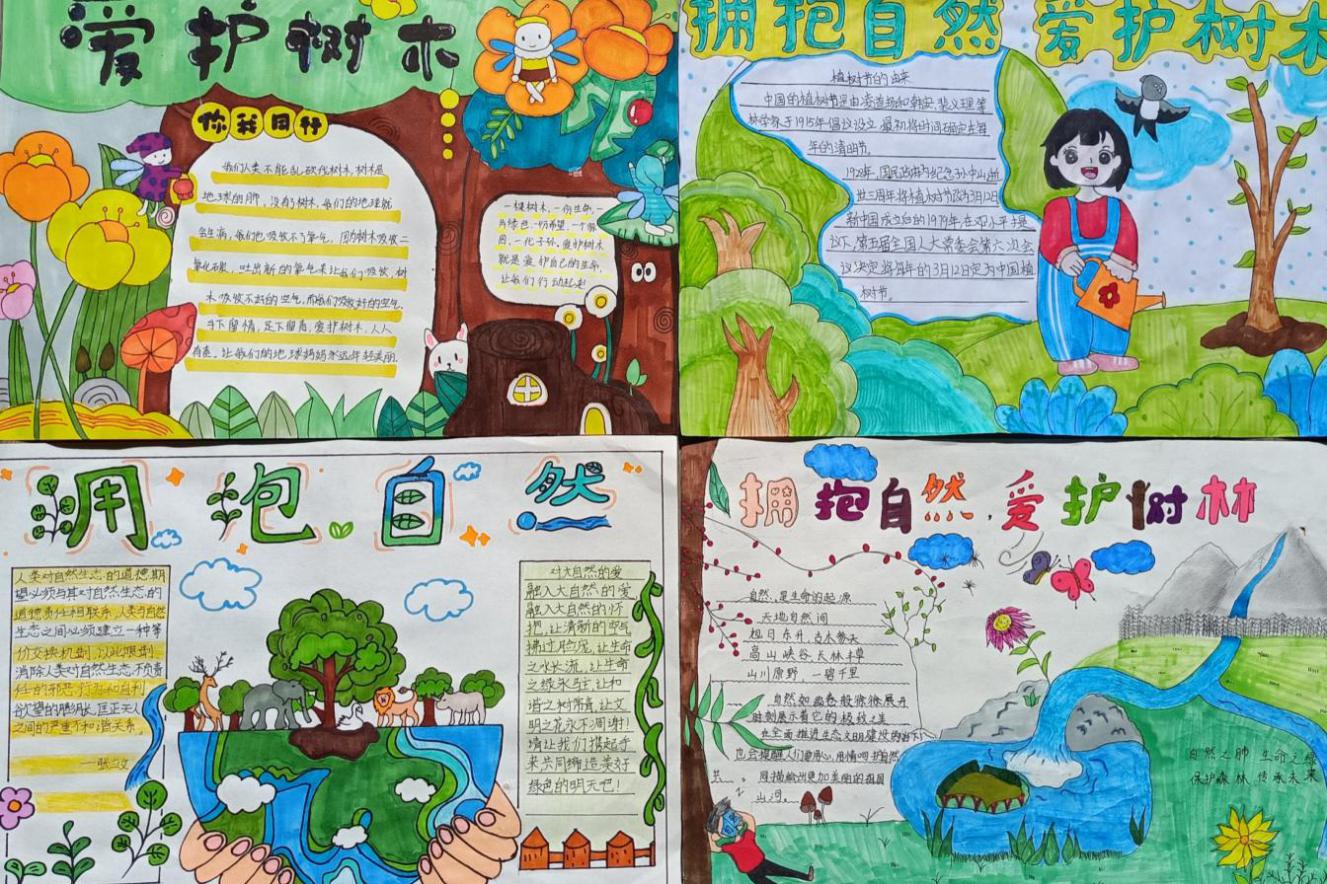 爱护树木
你我同行
我们人类不能乱砍伐树木,树木是
地球的肺,没有树木,我们的地球就
会生病,我们也吸收不了氧气,因为树木吸收二
氧化碳,吐出新的氧气来让我们吸收,树
木吸收不好的空气,而我们吸收好的空气,
手下留情,足下留青,爱护树木,人人
有责,让我们的地球妈妈永远年轻美丽.
一棵树木,一份生命,一
片绿色,一份希望,一个家
园,一代子孙,爱护树木
就是爱护自己的生命,
让我们行动起来
拥抱自然 爱护树木
植树节的由来
中国的植树节是由凌道扬和韩安、裴义理等
林学家于1915年倡议设立,最初将时间确定在每
年的清明节。
1928年,国民政府为纪念孙中山逝
世三周年将植树节改为3月12日
新中国成立后的1979年,在邓小平提
议下,第五届全国人大常委会第六次会
议决定将每年的3月12日定为中国植
树节。
拥抱自然
人类对自然生态的道德期
望必须与其对自然生态的
道德责任相联系,人类与自然
生态之间必须建立一种等
价交换机制,以此限制
消除人类对自然生态不负责
任的邪恶行为和自利
欲望的膨胀,匡正天人
之间的严重不和谐关系,
对大自然的爱
融入大自然的爱
融入大自然的怀
抱,让清新的空气
拂过脸庞,让生命
之水长流,让生命
之绿永驻,让和
谐之树常青,让文
明之花永不凋谢!
请让我们携起手
来共同缔造美好
绿色的明天吧!
拥抱自然,爱护树林
自然,是生命的起源
天地自然间
旭日东升,古木参天
高山峡谷,大林丰草
山川原野,一碧千里
自然如画卷般徐徐展开
时刻展示着它的极致之美
在全面推进生态文明建设的当下
山河。
自然之肺 生命之绿
保护森林 传承未来